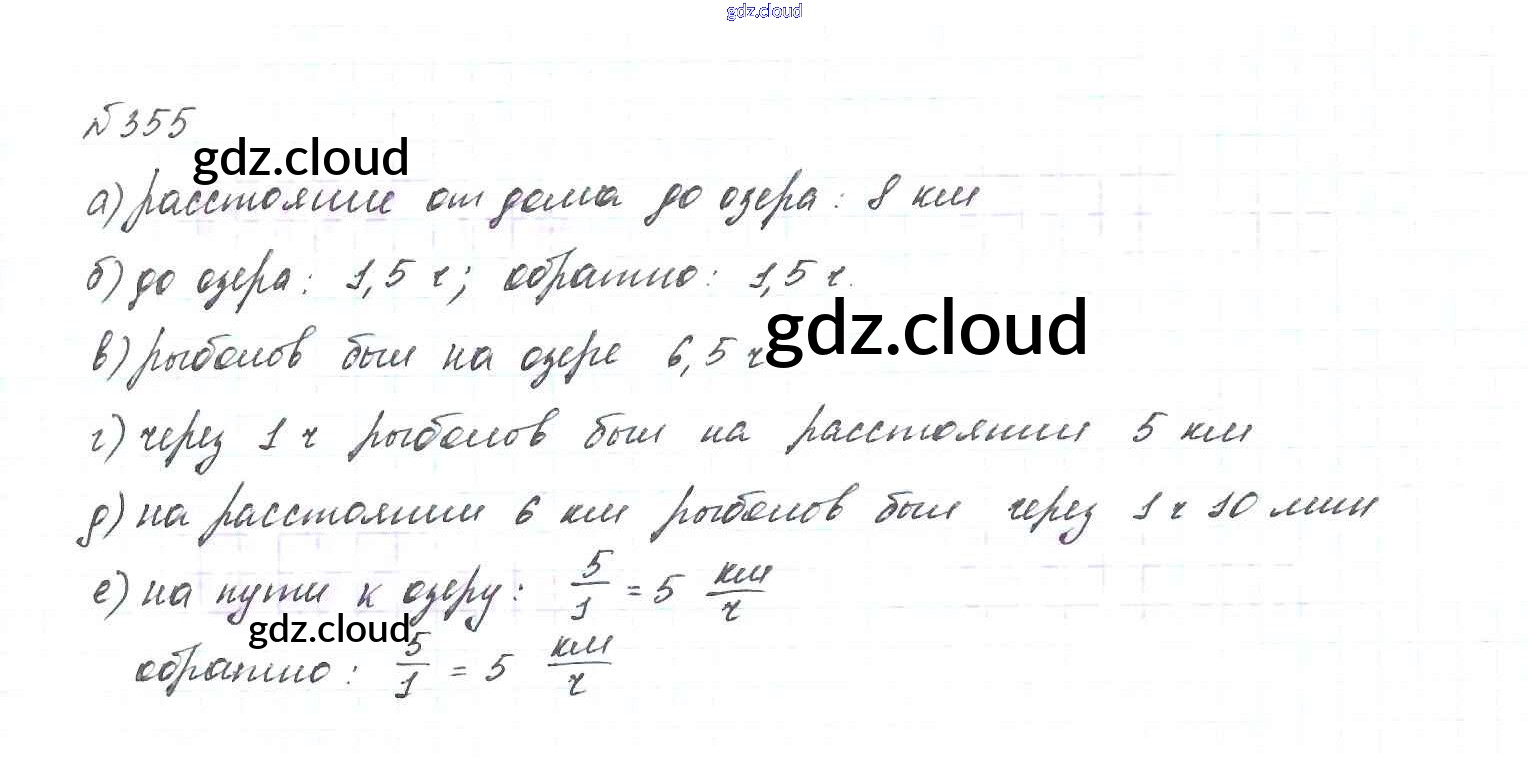 gdz.cloud
№355
gdz.cloud
а) расстояние от дома до озера: 8 км
б) до озера: 1,5 ч; обратно: 1,5 ч.
в) рыболов был на озере 6,5 ч
gdz.cloud
г) через 1 ч рыболов был на расстоянии 5 км
д) на расстоянии 6 км рыболов был через 1 ч 10 мин
е) на пути к озеру: 5/1 = 5 км/ч
gdz.cloud
обратно: 5/1 = 5 км/ч